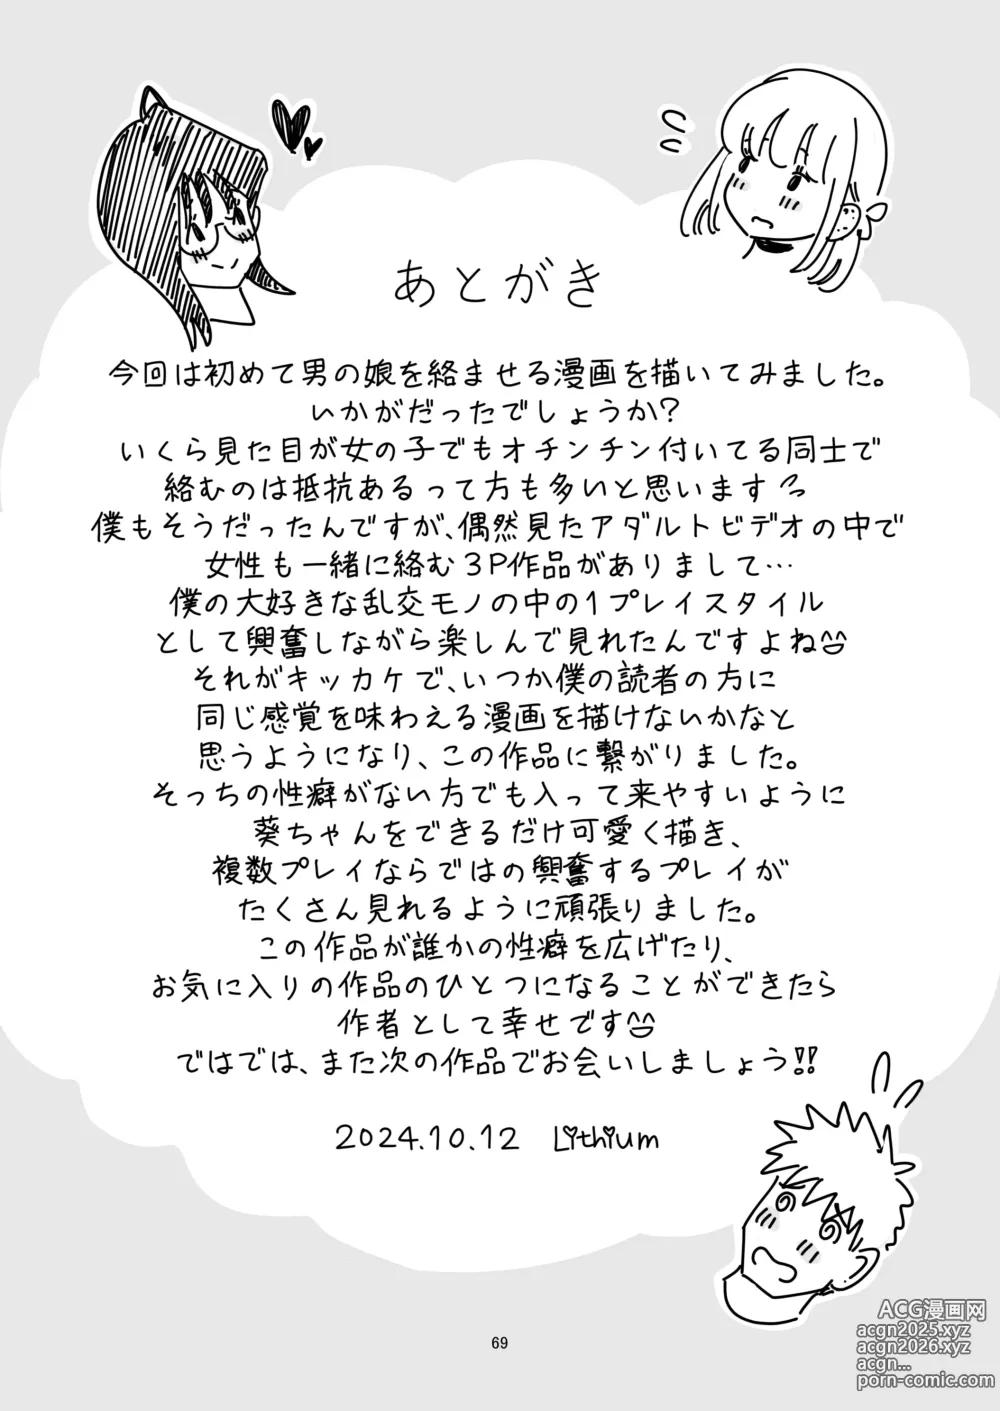 あとがき
今回は初めて男の娘を絡ませる漫画を描いてみました。
いかがだったでしょうか?
いくら見た目が女の子でもオチンチン付いてる同士で
絡むのは抵抗あるって方も多いと思います
僕もそうだったんですが、偶然見たアダルトビデオの中で
女性も一緒に絡む3P作品がありまして…
僕の大好きな乱交モノの中の1プレイスタイル
として興奮しながら楽しんで見れたんですよね
それがキッカケで、いつか僕の読者の方に
同じ感覚を味わえる漫画を描けないかなと
思うようになり、この作品に繋がりました。
そっちの性癖がない方でも入って来やすいように
葵ちゃんをできるだけ可愛く描き、
複数プレイならではの興奮するプレイが
たくさん見れるように頑張りました。
この作品が誰かの性癖を広げたり、
お気に入りの作品のひとつになることができたら
作者として幸せです
ではでは、また次の作品でお会いしましょう!!
2024.10.12 Lithium
ACG漫画网
acgn2025.xyz
acgn2026.xyz
acgn...
porn-comic.com
69